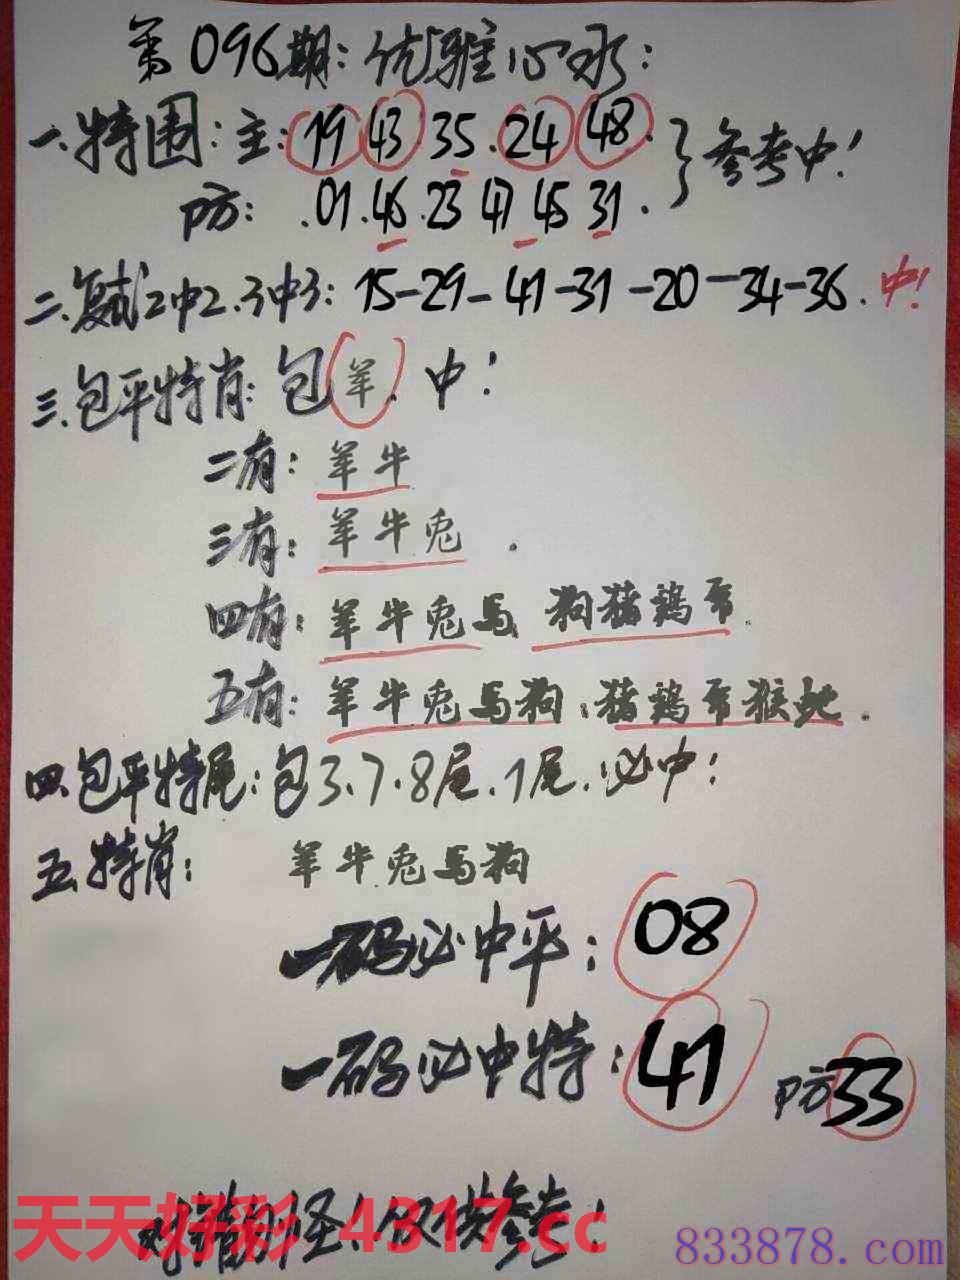 第096期: 优雅心水:
一.特围: 主: 19 43 35.24 48. 参考中!
防: .01.46.23 47 45 31.
二.复试2中2.3中3: 15-29-41-31-20-34-36. 中!
三.包平特肖: 包羊. 中!
二有: 羊牛
三有: 羊牛兔.
四有: 羊牛兔马 狗猪鸡
五有: 羊牛兔马狗: 猪鸡 猴蛇.
四.包平特尾: 包3.7.8尾.1尾.必中!
五.特肖: 羊牛兔马狗
一码必中平: 08
一码必中特: 41 防33
对错勿怪!仅供参考!
天天好彩 4317.cc
833878.com